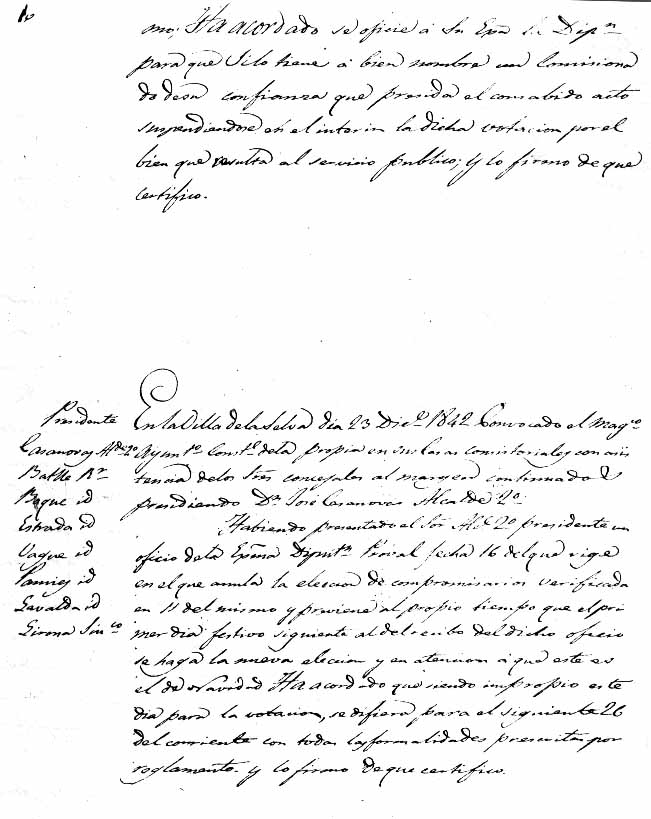 mo; Ha acordado se oficie á Su Exa la Dipn
para que si lo tiene á bien nombre un Comisiona
do desu confianza que presida el consabido acto
suspendiendose en el interin la dicha votacion por el
bien que resulta al servicio publico; y lo firmo de que
certifico.
Presidente
Casanovas Alde 2º
Batlle Rr
Baque id
Estrada id
Vaque id
Pamies id
Gavalda id
Girona Sinco
En la Villa de la Selva dia 23 Dice 1842 Convocado el Magco
Ayuntº Constl dela propia en sus Casas consistoriales con asis
tencia delos Sres concejales al margen continuados
presidiendo Dn José Casanovas Alcalde 2º
Habiendo presentado el Sor Alde 2º presidente un
oficio dela Exma Diputn Proval fecha 16 del que rige
en el que anula la eleccion de compromisarios verificada
en 11 del mismo y previene al propio tiempo que el pri
mer dia festivo siguiente al del recibo del dicho oficio
se haga la nueva eleccion y en atencion á que este es
el de Navidad Ha acordado que siendo impropio este
dia para la votacion, se difiera para el siguiente 26
del corriente con todas las formalidades prescritas por
reglamento. y lo firmo de que certifico.